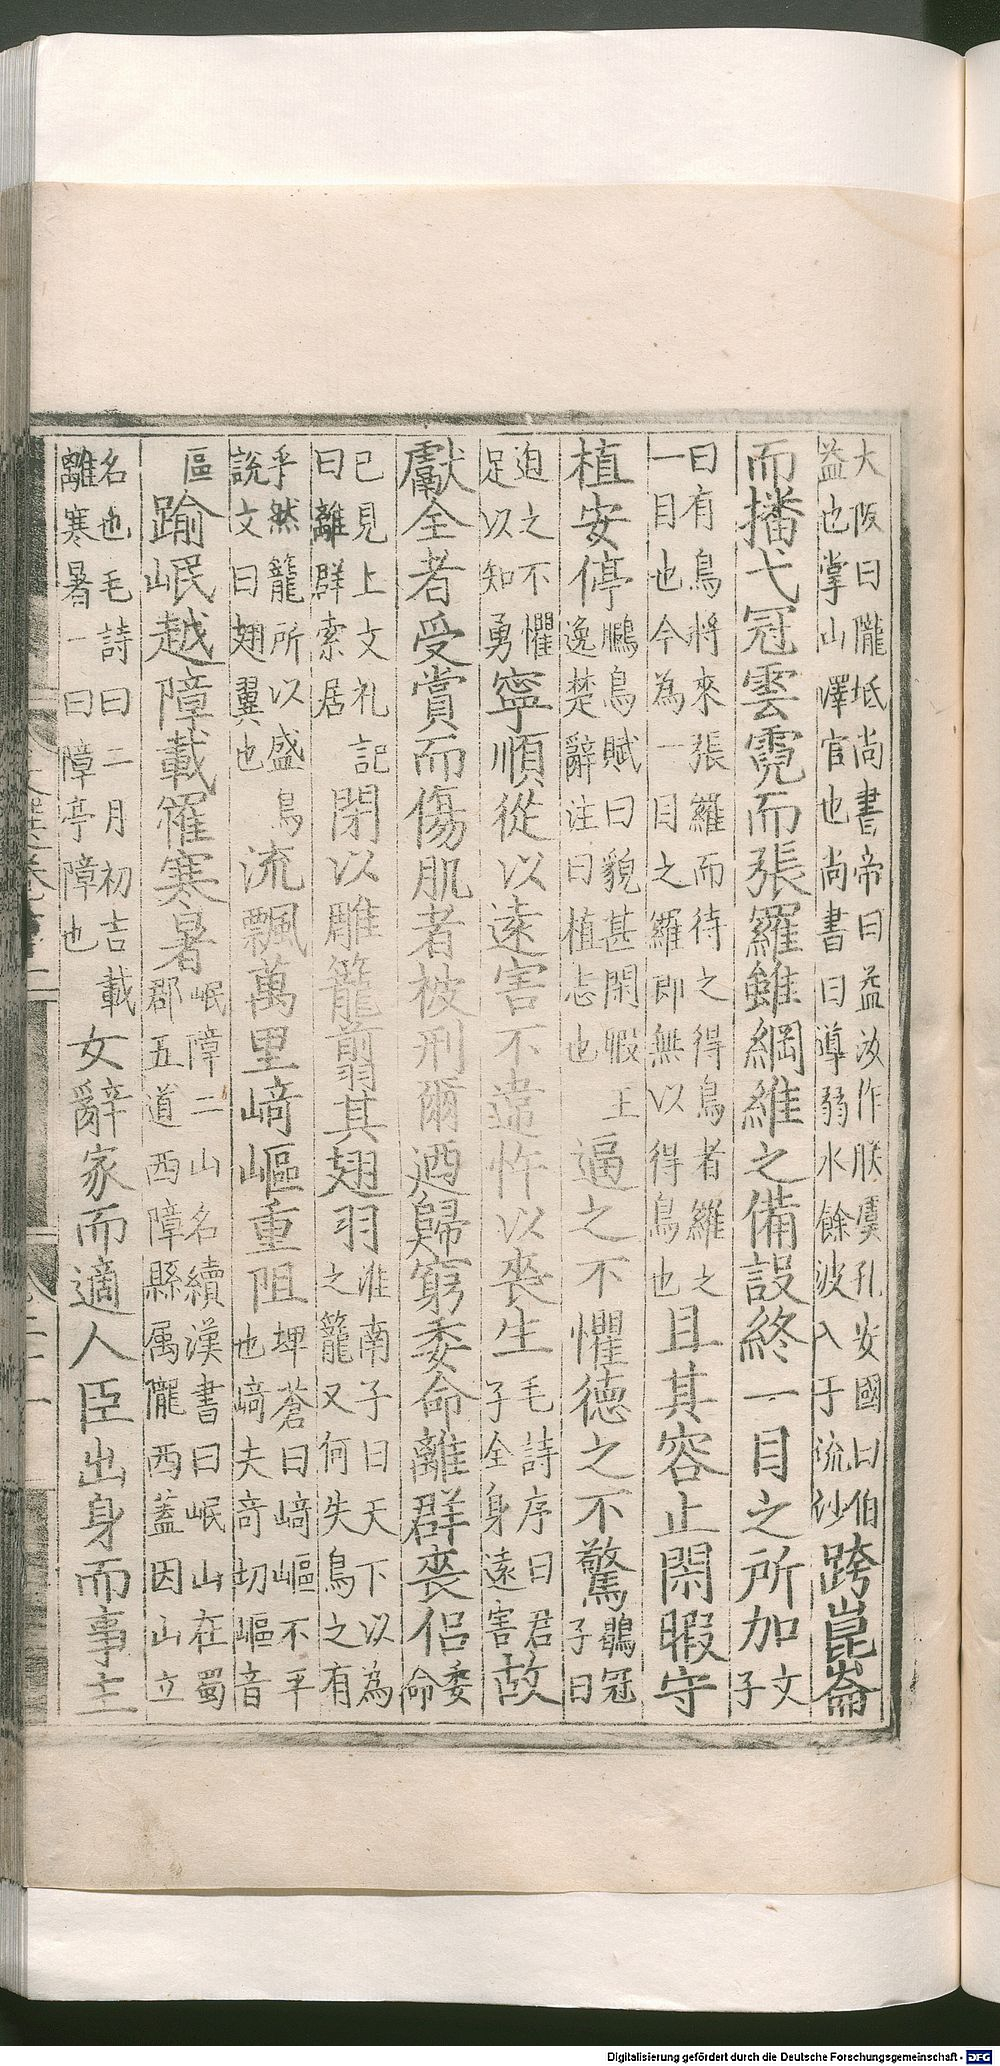 大阪曰隴坻尚書帝曰益汝作朕虞孔安國曰伯
益也掌山澤官也尚書曰導弱水餘波入于流沙
跨崑崙
而播弋冠雲霓而張羅雖綱維之備設終一目之所加
文
子
曰有鳥將來張羅而待之得鳥者羅之
一目也今為一目之羅即無以得鳥也
且其容止閑暇守
植安停
鵩鳥賦曰貌甚閑暇王
逸楚辭注曰植志也
逼之不懼德之不驚
鶡冠
子曰
迫之不懼
足以知勇
寧順從以遠害不違忤以喪生
毛詩序曰君
子全身遠害
故
獻全者受賞而傷肌者被刑爾迺歸窮委命離群喪侶
委
命
已見上文礼記
曰離群索居
閉以雕籠翦其翅羽
淮南子曰天下以為
之籠又何失鳥之有
乎然籠所以盛鳥
說文曰翅翼也
流飄萬里崎嶇重阻
埤蒼曰崎嶇不平
也崎夫奇切嶇音
區
踰岷越障載罹寒暑
岷障二山名續漢書曰岷山在蜀
郡五道西障縣属隴西蓋因山立
名也毛詩曰二月初吉載
離寒暑一曰障亭障也
女辭家而適人臣出身而事主
Digitalisierung gefördert durch die Deutsche Forschungsgemeinschaft - DFG